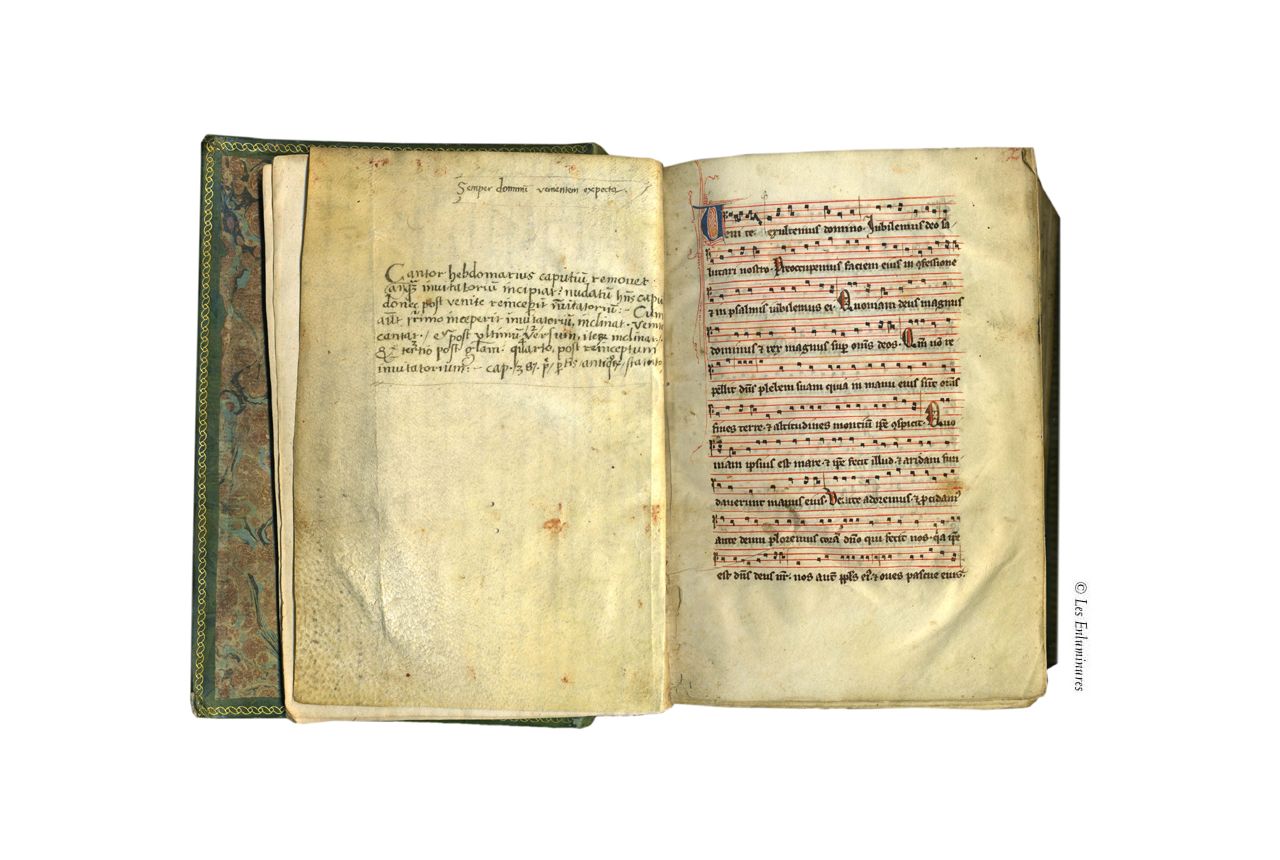 Semper domini venientem expecta.
Cantor hebdomarius caputiū removet
anq̄ȝ invitatoriū incipiat: nudatū hn̄s capu
donec post venite reinceperit īvitatoriū: - Cum
aūt pͥmo inceperit invitatoriū, inclinat. venite
cantat. / post vltimū versum, iteȝ inclinat.
tertio post glam. quarto, post reinceptum
invitatoriumː - cap. 38.
Venite exultemus domino. Jubilemus deo sa
lutari nostro. Preoccupemus faciem eius in ꝯfessione
⁊ in psalmis iubilemus ei. Quoniam deus magnus
dominus ⁊ rex magnus sup om̄s deos. Qm̄ nō re
pellit dn̄s plebem suam quia in manu eius sūt om̄s
fines terre. ⁊ altitudines montiū ip̄e ꝯspicit. Quo
niam ipsius est mare. ⁊ ip̄e fecit illud. ⁊ aridam fun
daverunt manus eius. Venite adoremus. ⁊ p̄cidam⁹
ante deum ploremus corā dn̄o qui fecit nos. q̄a ip̄e
est dn̄s deus nr̄. nos aut̄ ppl̄s ei⁹. ⁊ oves pascue eius.
© Les Enluminures